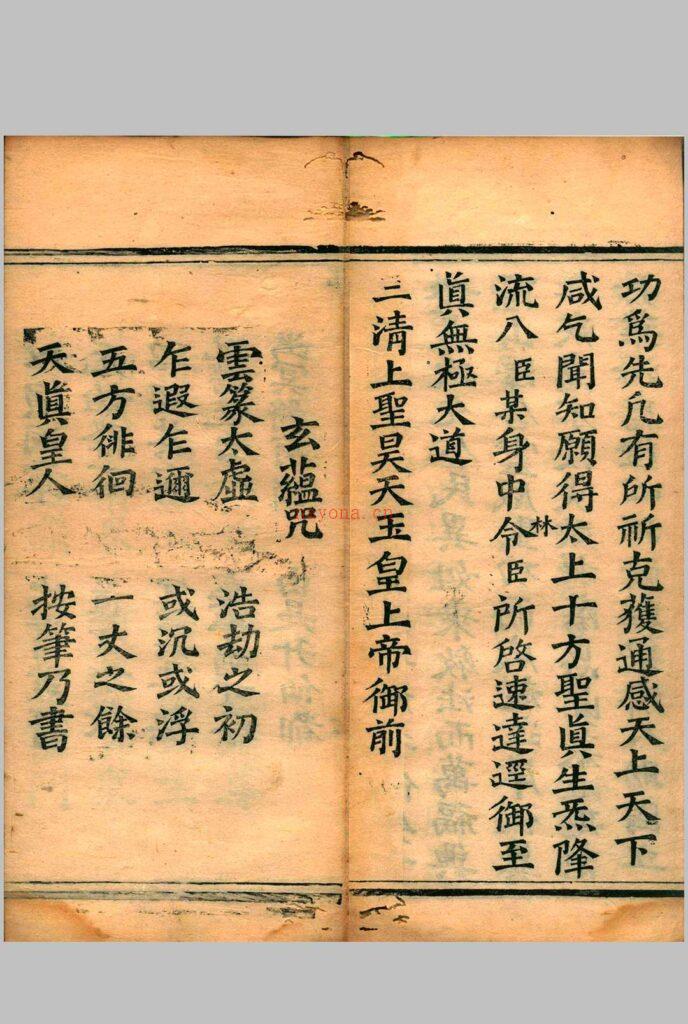 功爲先凢有所祈克獲通感天上天下
咸乞聞知願得太上十方聖眞生炁降
流八臣某身中令臣所啓速達逕御至
林
眞無極大道
三清上聖昊天玉皇上帝御前
玄蘊咒
雲篆太虛 浩劫之初
乍遐乍邇 或沉或浮
五方徘徊 一丈之餘
天眞皇人 按筆乃書